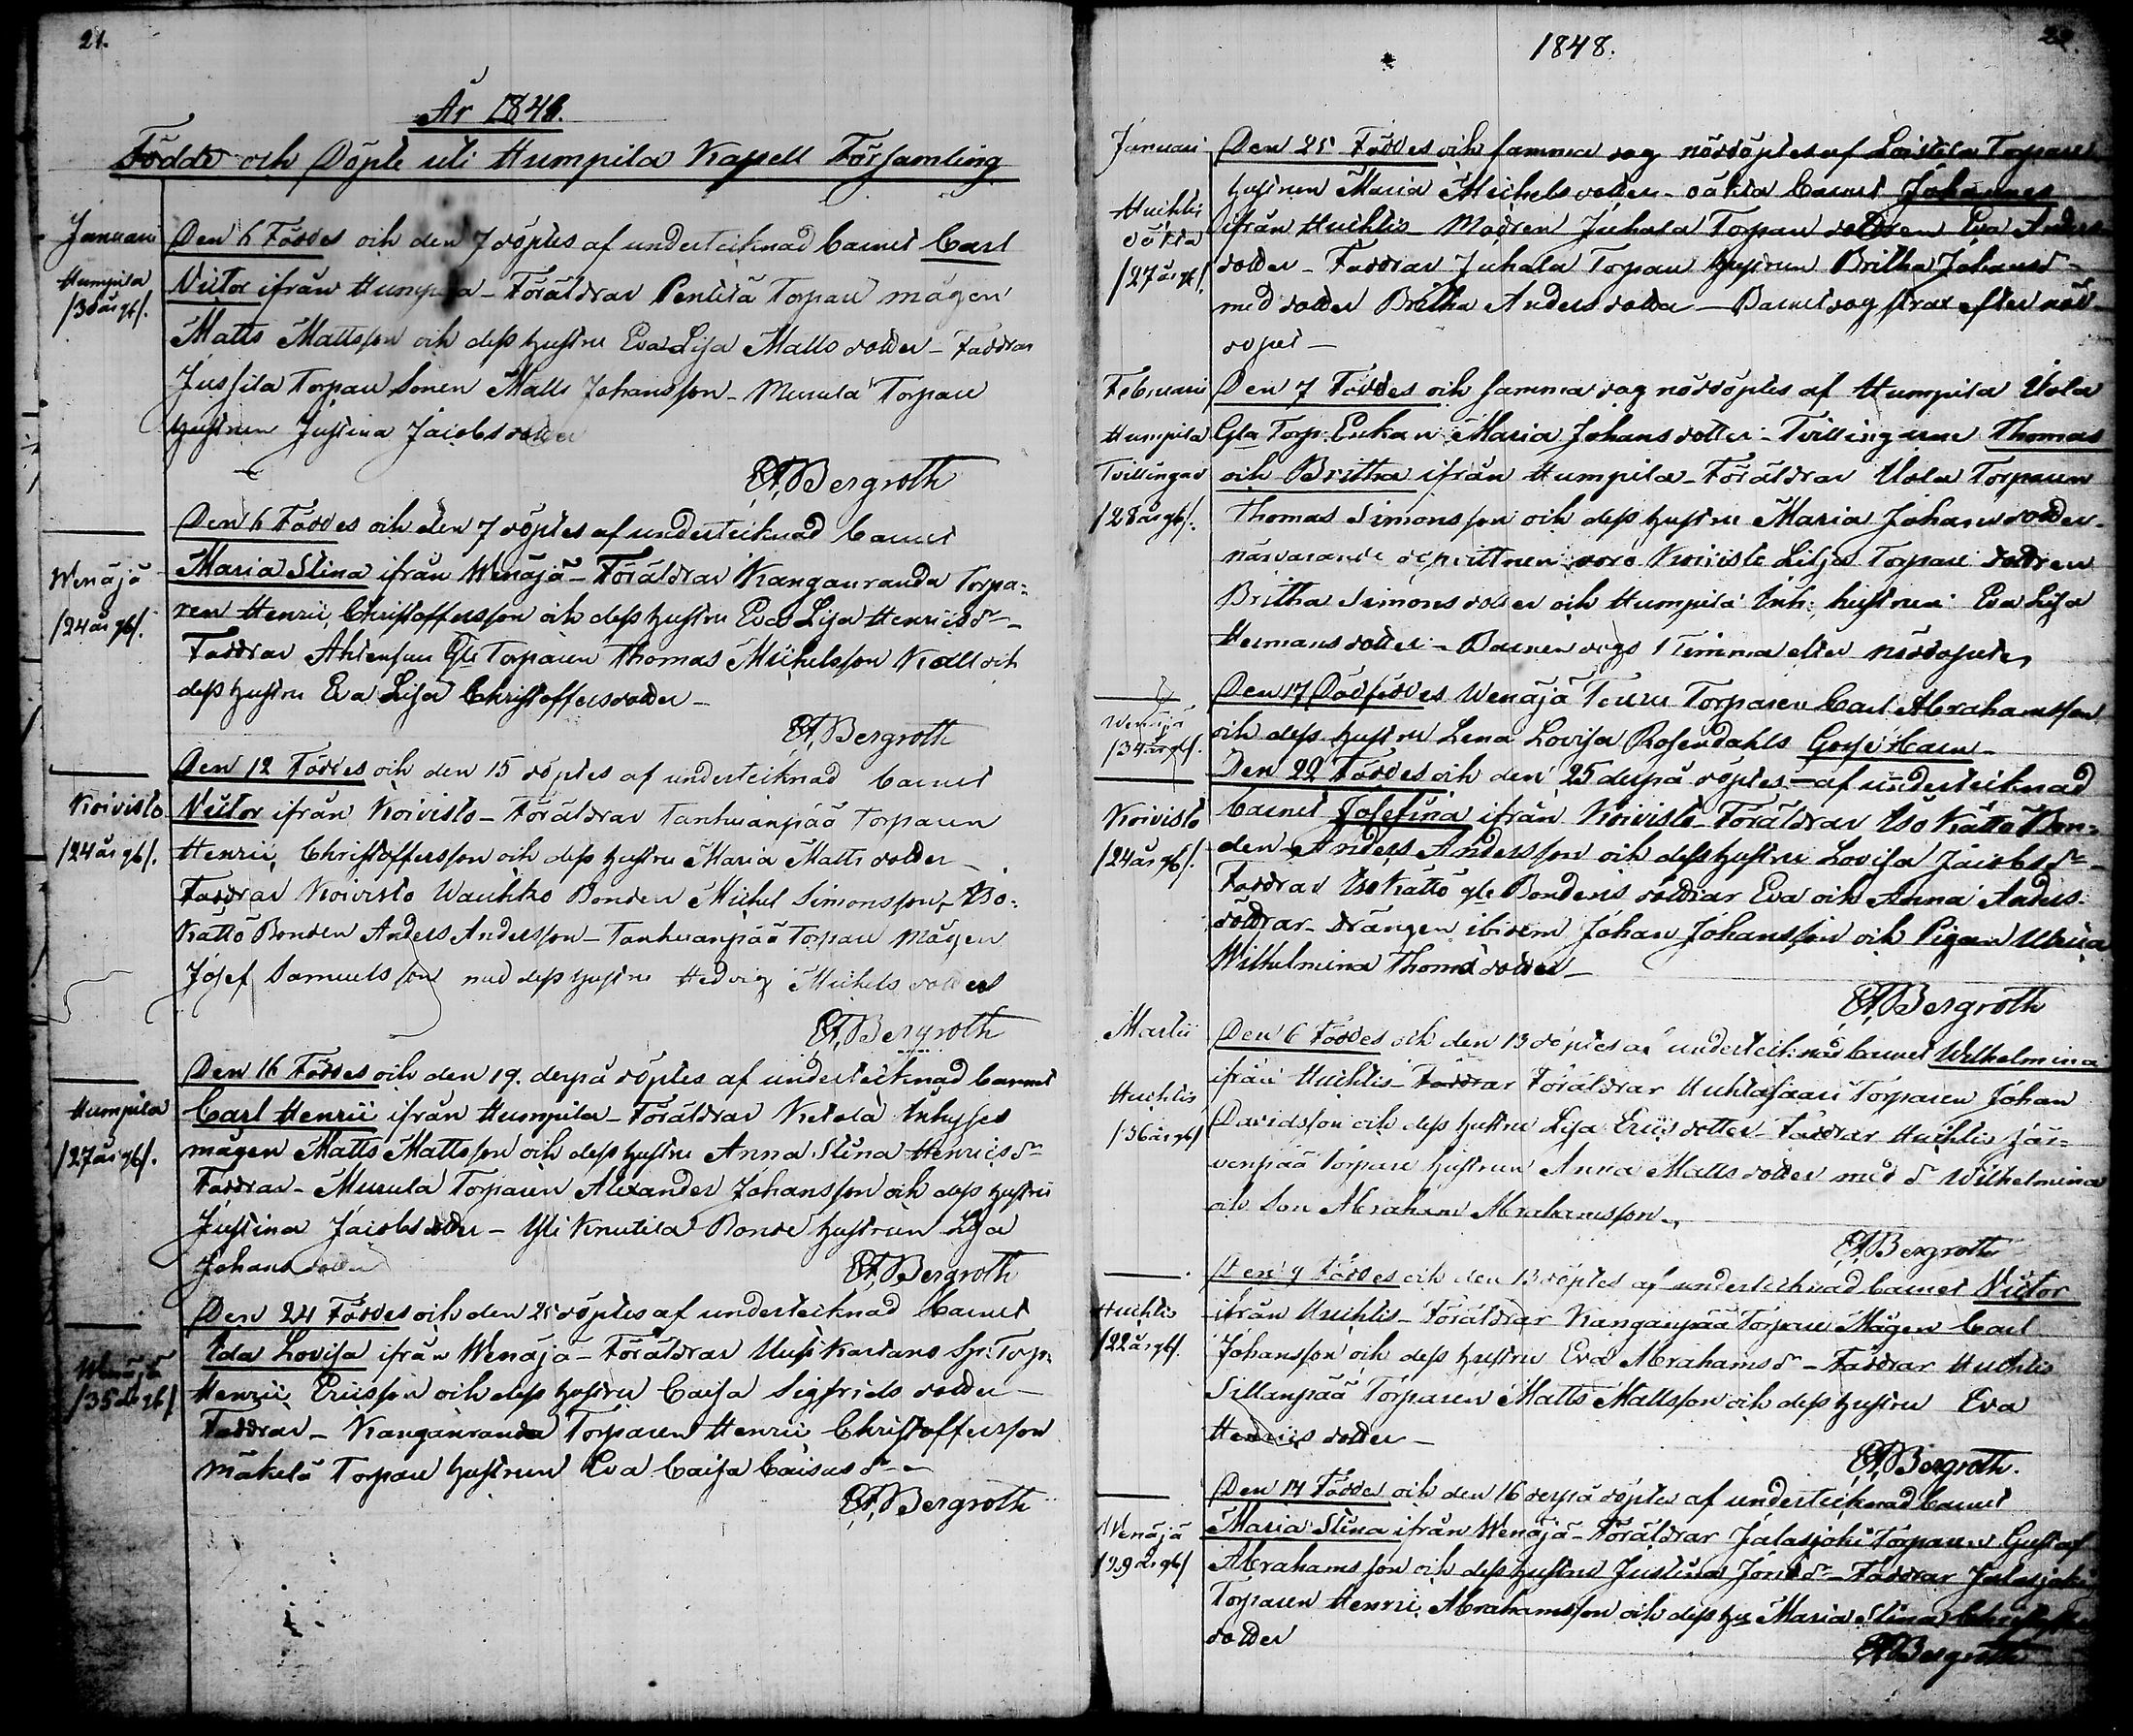 21.
År 1848.
Födde och Döpte uti Humpila Kapell Församling
Januari
Den 6 Föddes och den 7 döptes af undertecknad barnet Carl
Humpila
/30 år gl/.
Victor ifrån Humpila - Föräldrar Penttilä Torpare mågen
Matts Mattsson och dess hustru Eva Lisa Matts dotter - Faddrar
Jussila Torpare Sonen Matts Johansson - Murula Torpare
hustrun Justina Jacobs dotter
Bergroth
Den 6 Föddes och den 7 döptes af undertecknad barnet
Wenäjä
/24 år gl/.
Maria Stina ifrån Wenäjä - Föräldrar Kanganranda Torpa=
ren Henric Christoffersson och dess hustru Eva Lisa Henricsdr -
Faddrar Ahtensuu Gle Torparen Thomas Michelsson Käll och
dess hustru Eva Lisa Christoffersdotter -
Bergroth
Den 12 Föddes och den 15 döptes af undertecknad barnet
Koivisto
/24 år gl/.
Victor ifrån Koivisto - Föräldrar Tanhuanpää Torparen
Henric Christoffersson och dess hustru Maria Matts dotter -
Faddrar Koivisto Wauhko Bonden Michel Simonsson, Iso=
Kättö Bonden Anders Andersson - Tanhuanpää Torpare Mågen
Josef Samuelsson med dess hustru Hedvig Michels dotter
Bergroth
Den 16 Föddes och den 19. derpå döptes af undertecknad barnet
Humpila
/27 år gl/.
Carl Henric ifrån Humpila - Föräldrar Ketola Inhyses
mågen Matts Mattsson och dess hustru Anna Stina Henricsdr
Faddrar - Murula Torparen Alexander Johansson och dess hustru
Justina Jacobsdotter - Yli Knutila Bonde hustrun Lisa
Johans dotter
Bergroth
Den 24 Föddes och den 25 döptes af undertecknad barnet
Wenäjä
/35 år gl/
Ida Lovisa ifrån Wenäjä - Föräldrar Uusi Kartano Sp: Torp:
Henric Ericsson och dess hustru Caisa Sigfrids dotter -
Faddrar - Kanganranda Torparen Henric Christoffersson
Mäkelä Torpare hustrun Eva Caisa Caisasdr -
Bergroth
1848.
22.
Januari
Den 25 Föddes och samma dag nöddöptes af Torpare
Huchtis
oäkta
/27 år gl/.
hustrun Maria Michels dotter - oäkta barnet Johannes
ifrån Huchtis - Modren Juhala Torpare dottren Eva Anders
dotter - Faddrar Juhala Torpare hustrun Britha Johansdr -
med dotter Britha Anders dotter - Barnet dog strax efter nöd
dopet -
Februari
Den 7 Föddes och samma dag nöddöptes af Humpila Uola
Humpila
Tvillingar
/28 år gl/.
Gla Torp: Enkan Maria Johans dotter - Tvillingarne Thomas
och Britha ifrån Humpila - Föräldrar Uola Torparen
Thomas Simonsson och dess hustru Maria Johans dotter -
närvarande dopvittnen voro Koivisto Lilja Torpare dottren
Britha Simons dotter och Humpila Inh: hustrun Eva Lisa
Hermans dotter - Barnen dogo 1 timma efter nöddopet
Wenäjä
/34 år gl/.
Den 17 Dödföddes Wenäjä Teuru Torparen Carl Abrahamsson
och dess hustru Lena Lovisa Rosendahls Gosse barn -
Den 22 Föddes och den 25 derpå döptes - af undertecknad
Koivisto
/24 år gl/.
barnet Josefina ifrån Koivisto - Föräldrar Iso Kättö Bon=
den Anders Andersson och dess hustru Lovisa Jacobsdr -
Faddrar Iso Kättö gle Bondens döttrar Eva och Anna Anders-
döttrar - Drängen ibidem Johan Johansson och Pigan Ulrica
Wilhelmina Thomæ dotter -
Bergroth
Martii
Den 6 Föddes och den 13 döptes af undertecknad barnet Wilhelmina
Huchtis
/36 år gl/
ifrån Huchtis - Faddrar Föräldrar Huhtasaari Torparen Johan
Davidsson och dess hustru Lisa Erics dotter - Faddrar Huchtis Jär=
venpää Torpare hustrun Anna Matts dotter med dr Wilhelmina
och Son Abraham Abrahamsson
Bergroth
Den 9 Föddes och den 13 döptes af undertecknad barnet Victor
Huchtis
/22 år gl/.
ifrån Huchtis - Föräldrar Kanganpää Torpare Mågen Carl
Johansson och dess hustru Eva Abrahamsdr - Faddrar Huchtis
Sillanpää Torparen Matts Mattsson och dess hustru Eva
Henrics dotter -
Bergroth.
Den 14 Föddes och den 16 derpå döptes af undertecknad barnet
Wenäjä
/29 år gl/
Maria Stina ifrån Wenäjä - Föräldrar Jalasjoki Torparen Gustaf
Abrahamsson och dess hustru Justina Jonædr - Faddrar Jalasjoki
Torparen Henric Abrahamsson och dess hu Maria Stina Christoffers
dotter
Bergroth